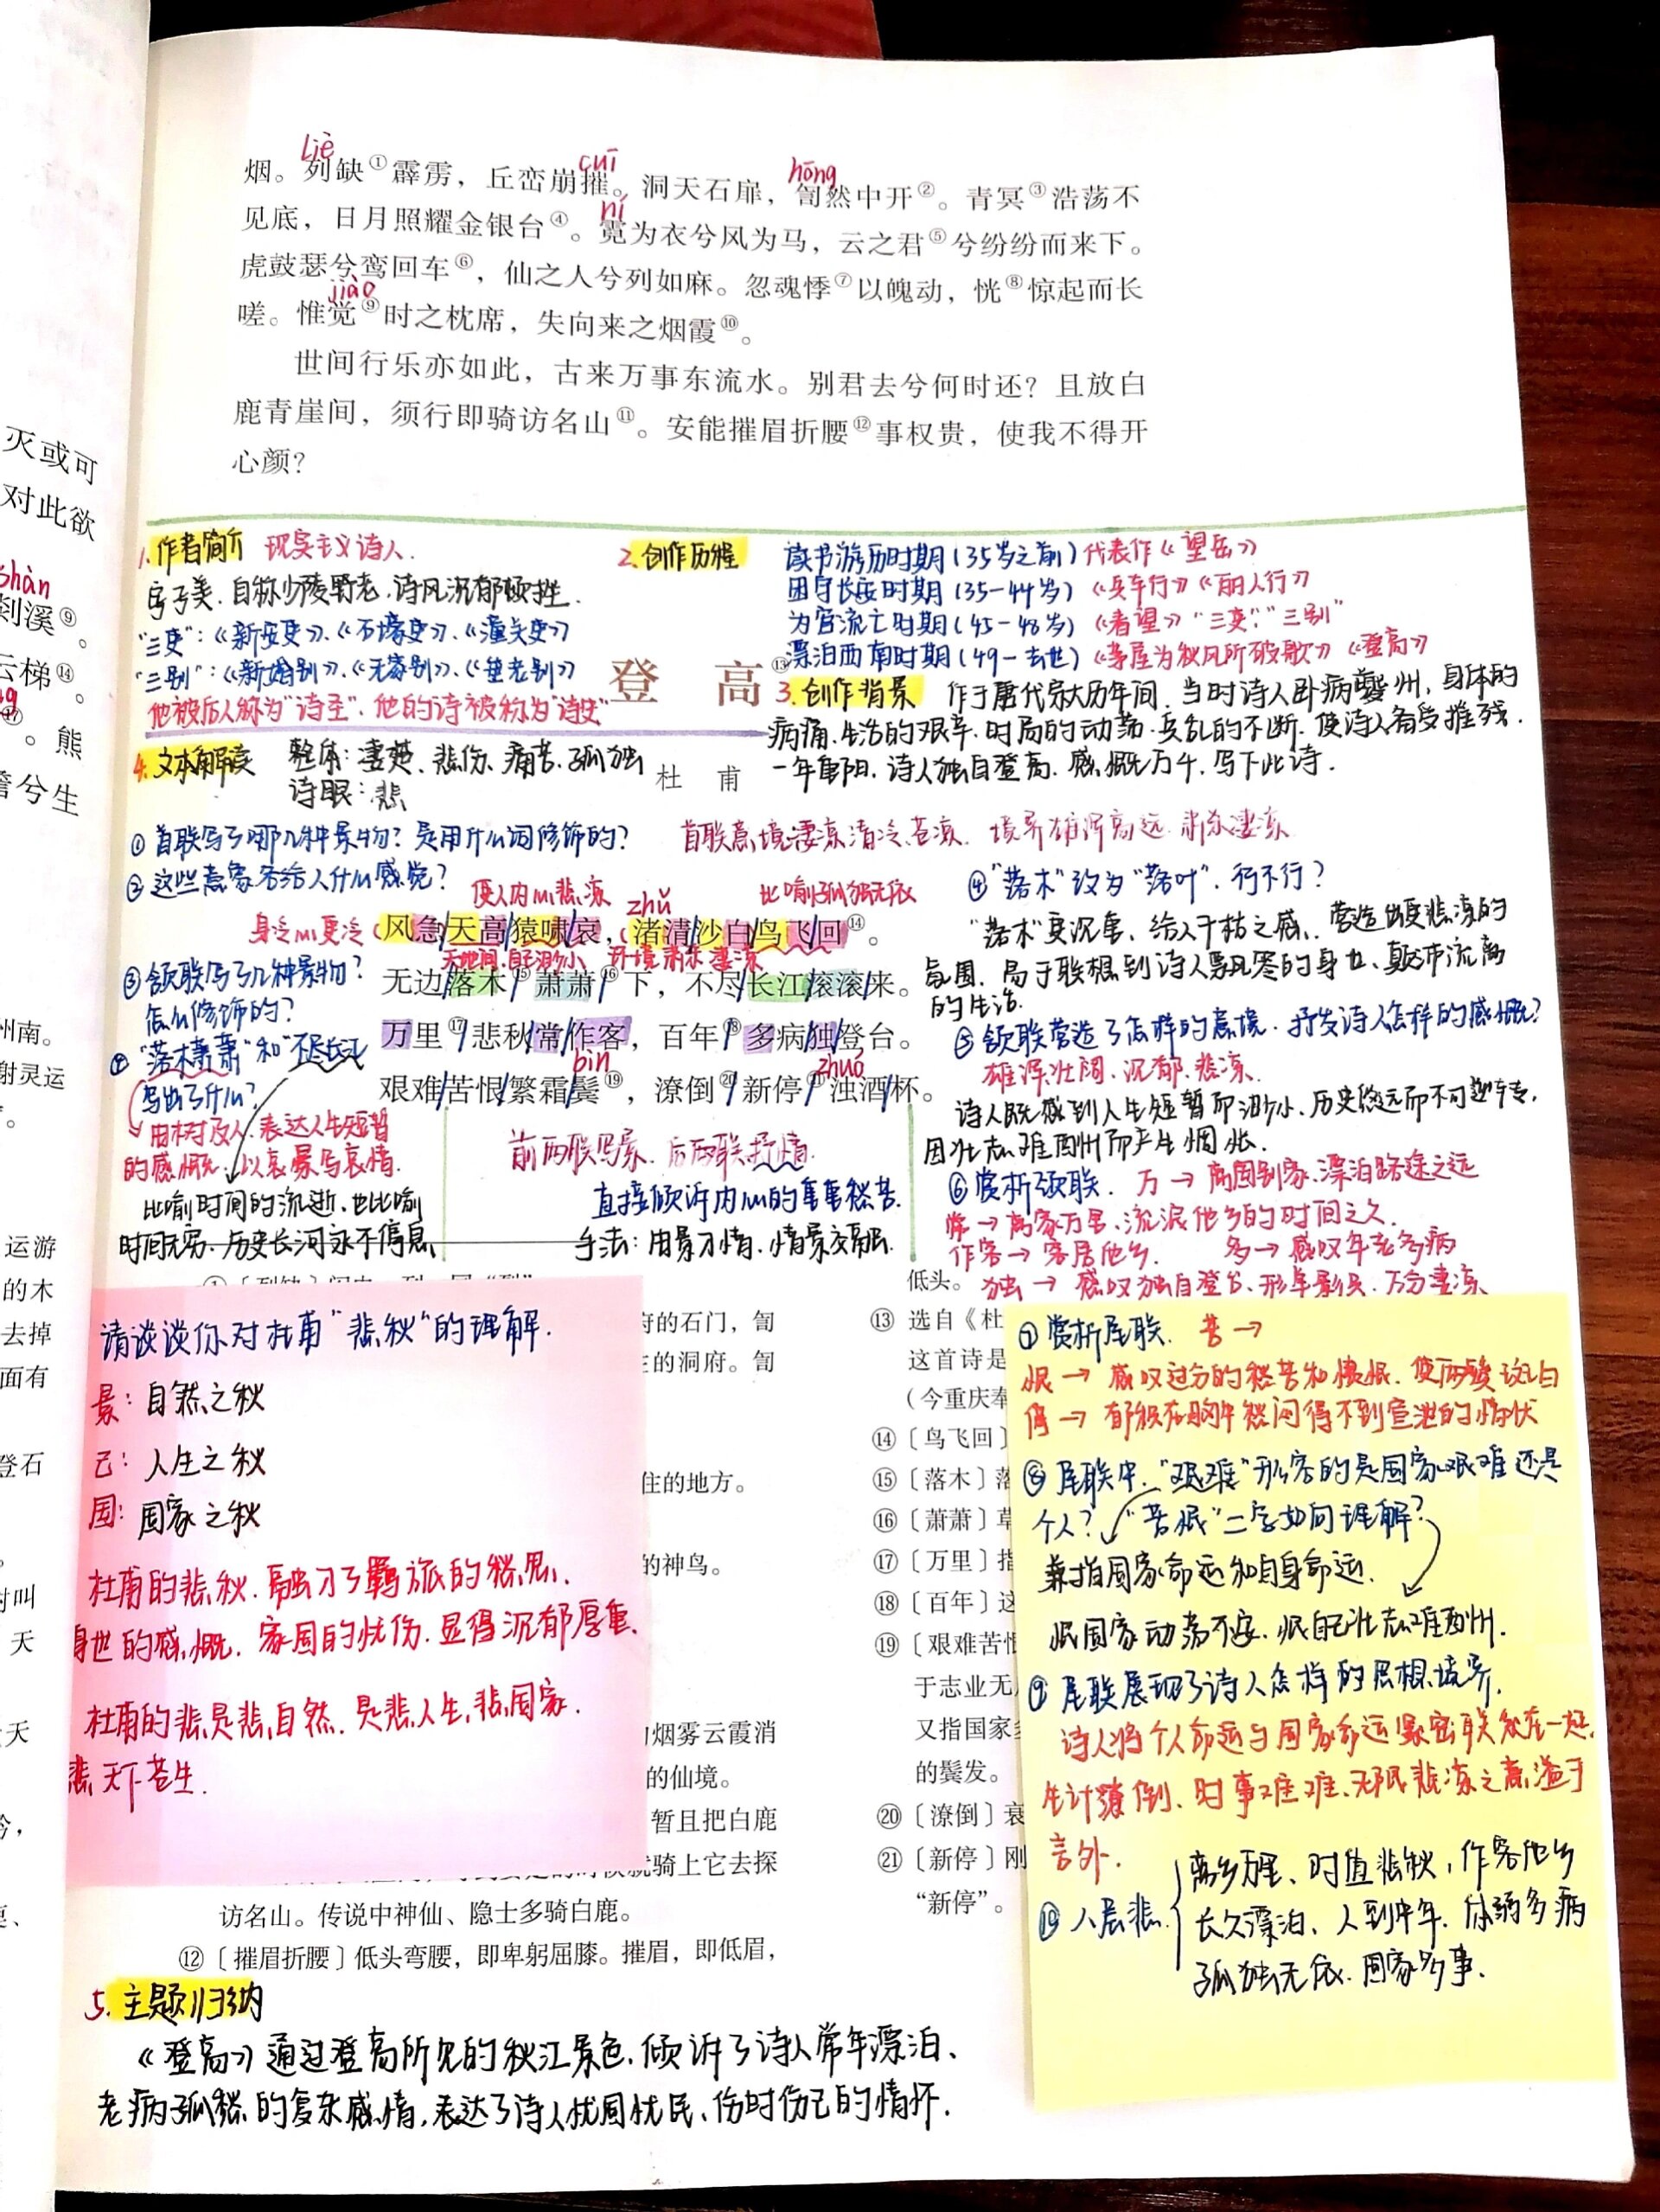 烟。列缺①霹雳，丘峦崩摧。洞天石扉，訇然中开②。青冥③浩荡不
liè
cuī
hōng
见底，日月照耀金银台④。霓为衣兮风为马，云之君⑤兮纷纷而来下。
ní
虎鼓瑟兮鸾回车⑥，仙之人兮列如麻。忽魂悸⑦以魄动，恍⑧惊起而长
嗟。惟觉⑨时之枕席，失向来之烟霞⑩。
jiào
世间行乐亦如此，古来万事东流水。别君去兮何时还？且放白
鹿青崖间，须行即骑访名山⑪。安能摧眉折腰⑫事权贵，使我不得开
心颜？
灭或可
对此欲
shàn
剡溪⑨。
云梯⑭。
⑰。熊
兮生
州南。
谢灵运
运游
的木
去掉
面有
登石
时叫
天
1.作者简介 现实主义诗人.
字子美.自称少陵野老.诗风沉郁顿挫.
"三吏"：《新安吏》、《石壕吏》、《潼关吏》
"三别"：《新婚别》、《无家别》、《垂老别》
他被后人称为"诗圣".他的诗被称为"诗史"
2.创作历程
读书游历时期(35岁之前)代表作《望岳》
困守长安时期(35-44岁)《兵车行》《丽人行》
为官流亡时期(45-48岁)《春望》"三吏""三别"
漂泊西南时期(49-去世)《茅屋为秋风所破歌》《登高》
登 高⑬
3.创作背景 作于唐代宗大历年间.当时诗人卧病夔州,身体的
病痛.生活的艰辛.时局的动荡.兵乱的不断.使诗人备受摧残.
一年重阳.诗人独自登高.感慨万千.写下此诗.
4.文本解读 整体:凄楚、悲伤、痛苦、孤独
诗眼:悲
杜 甫
①首联写了哪几种景物?是用什么词修饰的?
首联意境:凄凉清冷苍凉. 境界雄浑高远.肃杀凄凉
②这些意象各给人什么感觉?
使人内心悲凉
zhǔ
比喻孤独无依
身冷心更冷
风急天高猿啸哀，渚清沙白鸟飞回⑭。
天地间.自己渺小 环境肃杀凄凉
无边落木⑮萧萧⑯下，不尽长江滚滚来。
万里⑰悲秋常作客，百年⑱多病独登台。
bìn
zhuó
艰难苦恨繁霜鬓⑲，潦倒⑳新停㉑浊酒杯。
③颔联写了几种景物?
怎么修饰的?
④"落木萧萧"和"不尽长江"
写出了什么?
由树及人.表达人生短暂
的感慨.以哀景写哀情.
比喻时间的流逝.也比喻
时间无穷.历史长河永不停息
前两联写景.后两联抒情.
直接倾诉内心的重重愁苦.
手法:由景习情.情景交融.
④"落木"改为"落叶".行不行?
"落木"更沉重、给人干枯之感.营造出更悲凉的
氛围.易于联想到诗人飘零的身世、颠沛流离
的生活.
⑤颔联营造了怎样的意境.抒发诗人怎样的感慨?
雄浑壮阔.沉郁.悲凉.
诗人既感到人生短暂而渺小.历史悠远而不可逆转,
因壮志难酬而产生惆怅.
⑥赏析颈联. 万→离国别家.漂泊路途之远
常→离家万里.流浪他乡的时间之久.
作客→客居他乡. 多→感叹年老多病
独→感叹独自登台、形单影只.万分凄凉
请谈谈你对杜甫"悲秋"的理解.
景: 自然之秋
己: 人生之秋
国: 国家之秋
杜甫的悲秋.融习了羁旅的愁思、
身世的感慨.家国的忧伤.显得沉郁厚重.
杜甫的悲是悲自然.是悲人生,悲国家.
悲天下苍生.
府的石门，訇
的洞府。訇
住的地方。
的神鸟。
烟雾云霞消
的仙境。
暂且把白鹿
骑上它去探
访名山。传说中神仙、隐士多骑白鹿。
⑫〔摧眉折腰〕低头弯腰，即卑躬屈膝。摧眉，即低眉，
低头。
⑬ 选自《杜
这首诗是
（今重庆奉
⑭〔鸟飞回〕
⑮〔落木〕落
⑯〔萧萧〕草
⑰〔万里〕指
⑱〔百年〕这
⑲〔艰难苦恨
于志业无
又指国家多
的鬓发。
⑳〔潦倒〕衰
㉑〔新停〕刚
“新停”。
⑦赏析尾联. 苦→
恨→感叹过分的愁苦和懊恨.使两鬓斑白
停→郁积在胸中愁闷得不到宣泄的情状
⑧尾联中."艰难"形容的是国家艰难还是
个人? "苦恨"二字如何理解?
兼指国家命运和自身命运.
恨国家动荡不安.恨自己壮志难酬.
⑨尾联展现了诗人怎样的思想境界.
诗人将个人命运与国家命运紧密联系在一起,
生计潦倒、时事艰难.无限悲凉之意,溢于
言外.
⑩八层悲
离乡万里、时值悲秋,作客他乡
长久漂泊、人到中年.体弱多病
孤独无依.国家多事.
5.主题归纳
《登高》通过登高所见的秋江景色.倾诉了诗人常年漂泊、
老病孤愁的复杂感情,表达了诗人忧国忧民、伤时伤己的情怀.